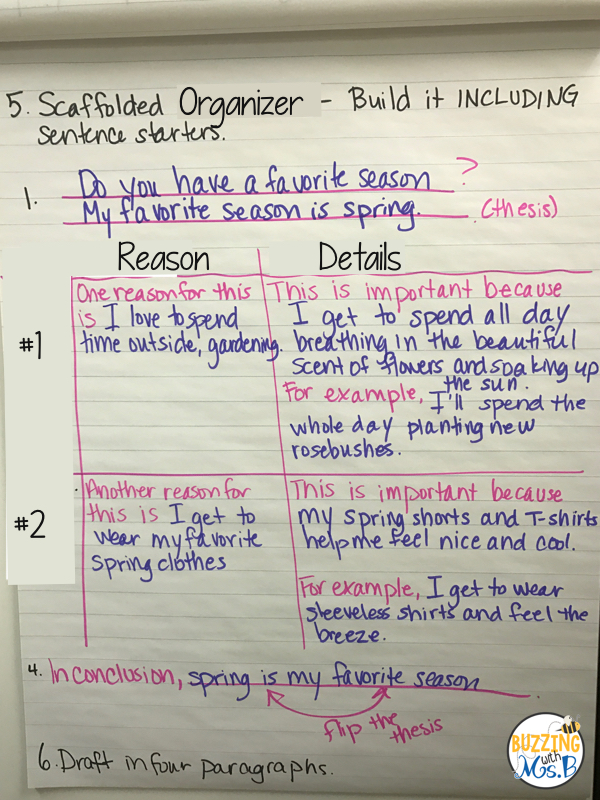 5. Scaffolded Organizer - Build it INCLUDING
sentence starters.
1. Do you have a favorite season?
My favorite season is spring. (thesis)
Reason Details
#1
One reason for this
is I love to spend
time outside, gardening.
This is important because
I get to spend all day
breathing in the beautiful
scent of flowers and soaking up
the sun.
For example, I'll spend the
whole day planting new
rosebushes.
#2
Another reason for
this is I get to
wear my favorite
spring clothes
This is important because
my spring shorts and T-shirts
help me feel nice and cool.
For example, I get to wear
sleeveless shirts and feel the
breeze.
4. In conclusion, spring is my favorite season.
flip the
thesis
6. Draft in four paragraphs.
BUZZING
with
Ms.B